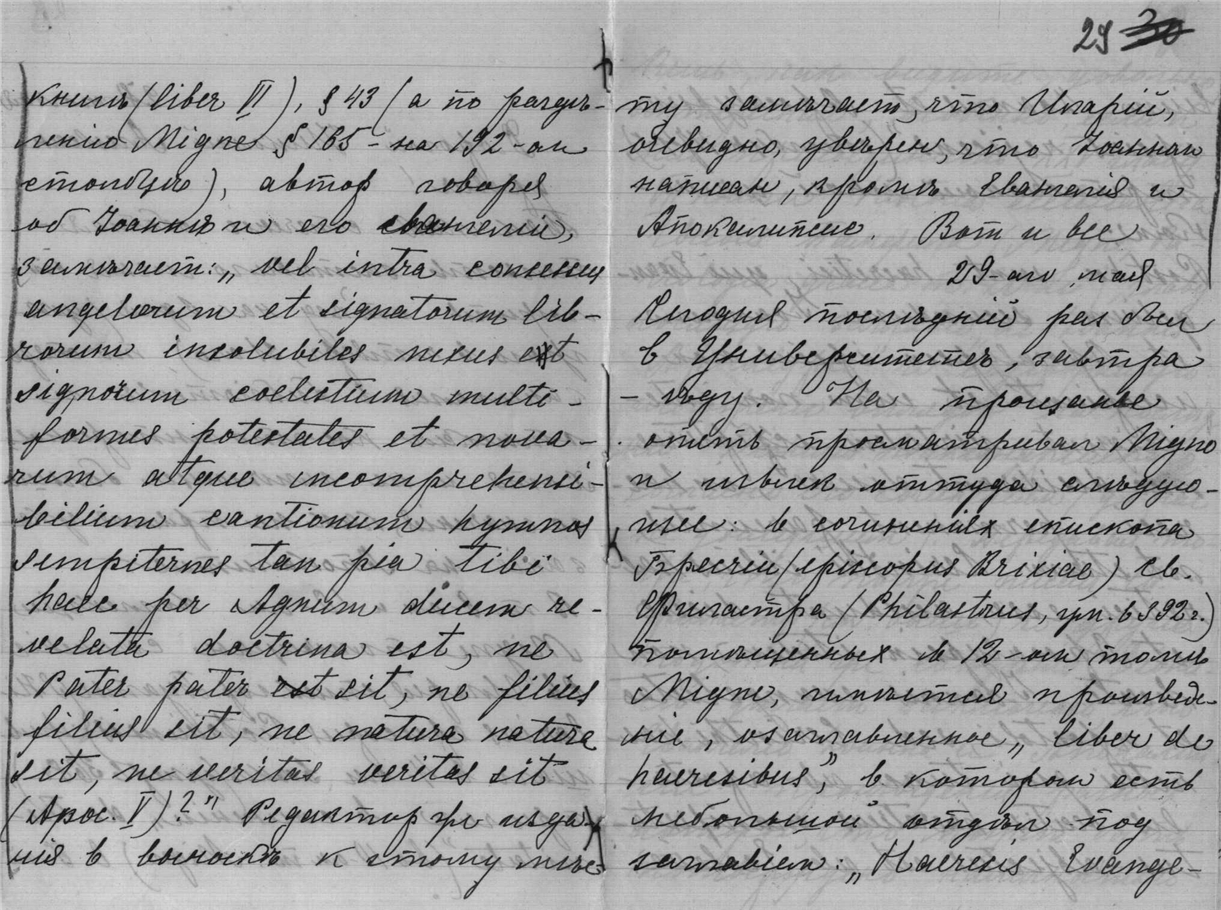 29 30
книги (liber VI), § 43 (а по раздѣ-
ленію Migne § 165 - на 192-ом
столбцѣ), автор говоря
об Іоаннѣ и его евангеліи,
замѣчает: „vel intra consessus
angelorum et signatorum lib-
rorum insolubiles nexus et
signorum coelestium multi-
formes potestates et nova-
rum atque incomprehensi-
bilium cantionum hymnos
sempiternes tan pia tibi
haec per Agnum ducem re-
velata doctrina est, ne
Pater pater est sit, ne filius
filius sit, ne natura natura
sit, ne veritas veritas sit
(Apoc. V)?" Редактор же изда-
нія в выноскѣ к этому мѣс-
ту замѣчает, что Иларій,
очевидно, увѣрен, что Іоанном
написан, кромѣ Евангелія и
Апокалипсис. Вот и все
29-аго мая
Сегодня послѣдній раз был
в Университетѣ, завтра
- ѣду. На прощанье
опять просматривал Migne
и извлек оттуда слѣдую-
щее: в сочиненіях епископа
Бресчіи (episcopus Brixiae) Св.
Филастра (Philastrus, ум. в 392 г.)
помѣщенных в 12-ом томѣ
Migne, имѣется произведе-
ніе, озаглавленное „liber de
haeresibus", в котором есть
небольшой отдѣл под
заглавіем: „Haeresis Evange-